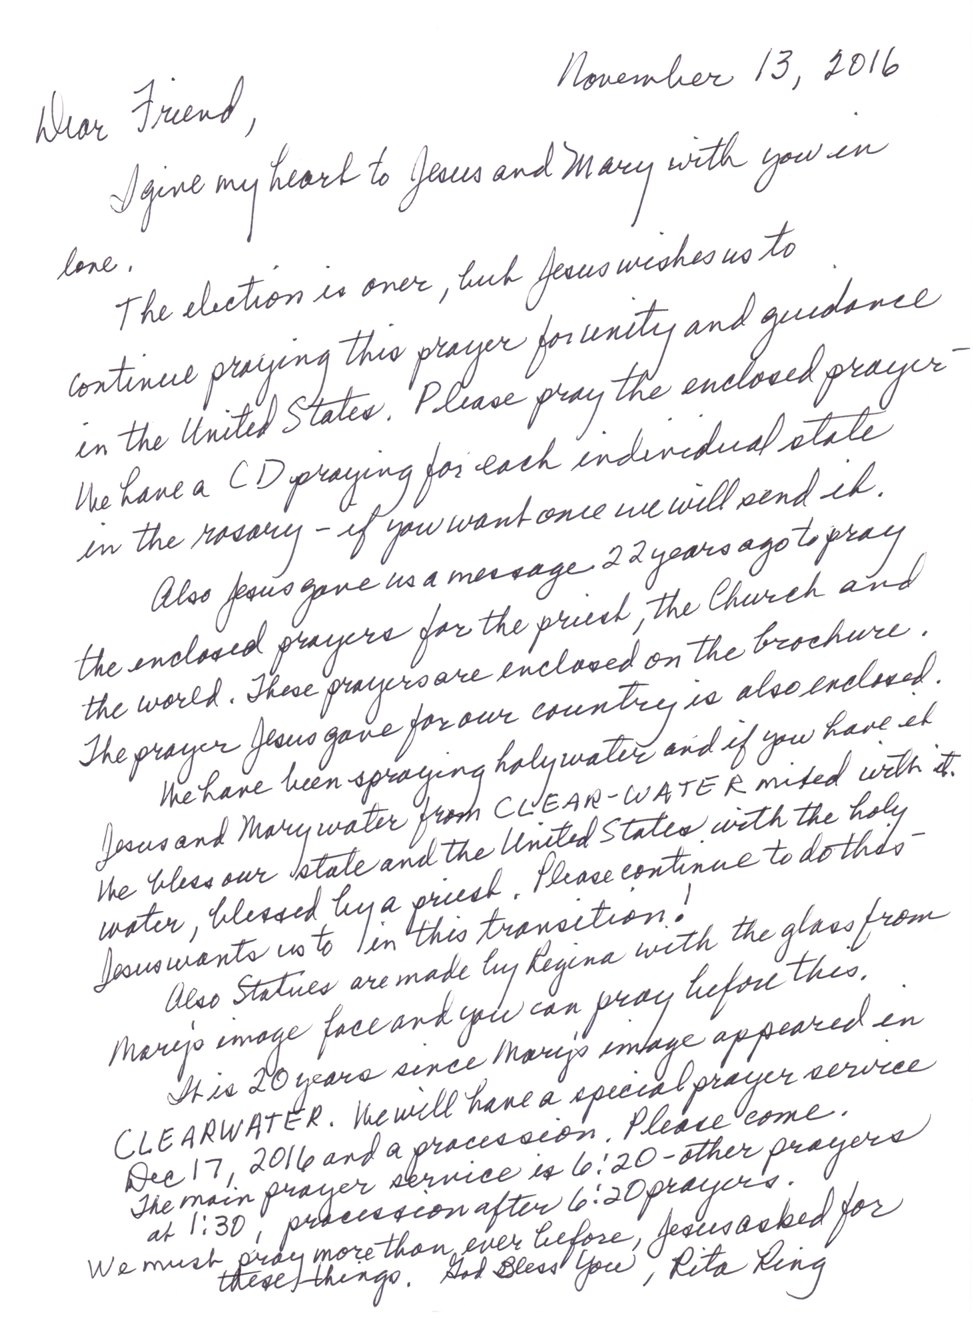 November 13, 2016
Dear Friend,
I give my heart to Jesus and Mary with you in
love.
The election is over, but Jesus wishes us to
continue praying this prayer for unity and guidance
in the United States. Please pray the enclosed prayer-
We have a CD praying for each individual state
in the rosary - if you want once we will send it.
Also Jesus gave us a message 22 years ago to pray
the enclosed prayers for the priest, the Church and
the world. These prayers are enclosed on the brochure.
The prayer Jesus gave for our country is also enclosed.
We have been spraying holy water and if you have it
Jesus and Mary water from CLEAR-WATER mixed with it.
We bless our state and the United States with the holy
water, blessed by a priest. Please continue to do this-
Jesus wants us to in this transition!
Also Statues are made by Regina with the glass from
Mary's image face and you can pray before this.
It is 20 years since Mary's image appeared in
CLEARWATER. We will have a special prayer service
Dec 17, 2016 and a procession. Please come.
The main prayer service is 6:20 - other prayers
at 1:30, procession after 6:20 prayers.
We must pray more than ever before, Jesus asked for
these things. God Bless You, Rita Ring